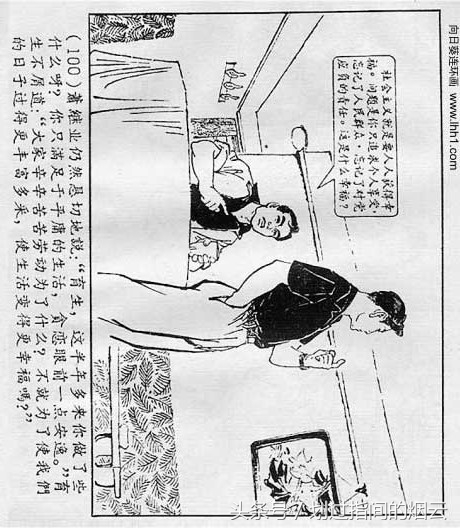 向日葵连环画 www.lhh1.com
社会主义就是要人人获得幸
福。问题是你只追求个人享受，
忘记了人民群众，忘记了对党
应负的责任。这是什么幸福？
(100) 蕭继业仍然恳切地說：“育生，这半年多来你做了些
什么呀？你只满足于平庸的生活，貪恋眼前一点安逸。”育
生不屑道：“大家辛辛苦苦劳动为了什么？不就为了使我們
的日子过得更丰富多来，使生活变得更幸福嗎？”
头条号 / 间的烟云